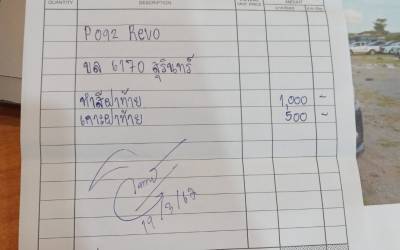 QUANTITY DESCRIPTION UNIT PRICE AMOUNT
P092 Revo
ขล 6170 สุรินทร์
ทำสีฝาท้าย 1,000 -
เคาะฝาท้าย 500 -
19/3/62